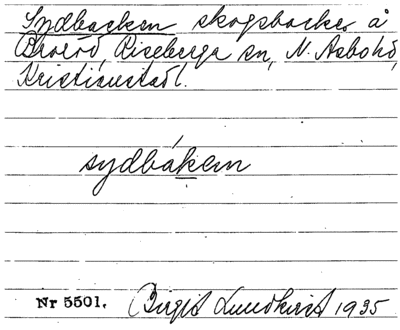 Sydbacken skogsbacke å
Broeröd, Riseberga sn, N. Åsbo hd,
Kristianstad l.
sydbákem
Nr 5501. Birgit Lundkvist 1935